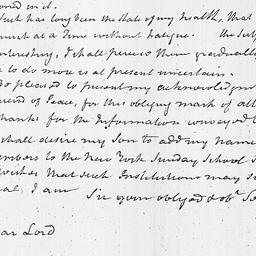 oned in it.
Such has long been the State of my health, that
much at a Time without Fatigue. The Subj
interesting, I shall peruse them gradually
to do more is at present uncertain.
do pleased to present my acknowledgm
friend of Peace, for this obliging mark of atte
thanks for the Information conveyed b
shall desire my Son to add my name
members to the New York Sunday School S
wishes that such Institutions may su
I am Sir your oblig.d & ob.t Se
ar Lord